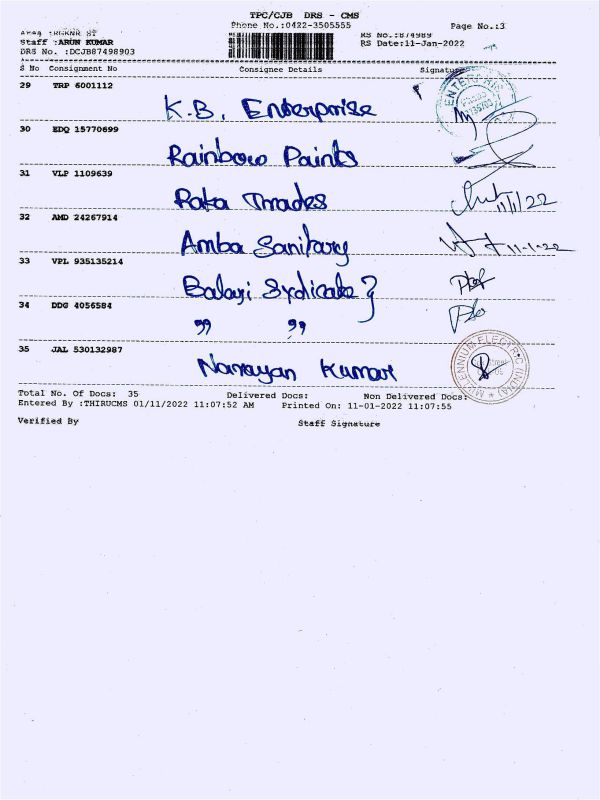 TPC/CJB DRS - CMS
Phone No.:0422-3505555 Page No.:3
Staff :ARUN KUMAR RS No.:874989
DRS No. :DCJB87498903 RS Date:11-Jan-2022
S No Consignment No Consignee Details Signature
29 TRP 6001112
K.B. Enterprise
30 EDQ 15770699
Rainbow Paints
31 VLP 1109639
Raka Traades 11/1/22
32 AMD 24267914
Amba Sanitary 11-1-22
33 VPL 935135214
Balayi Sydicate }
34 DDG 4056584
" "
35 JAL 530132987
Narayan Kumar
MILLENNIUM ELECTRIC (INDIA)
Total No. Of Docs: 35 Delivered Docs: Non Delivered Docs:
Entered By :THIRUCMS 01/11/2022 11:07:52 AM Printed On: 11-01-2022 11:07:55
Verified By Staff Signature